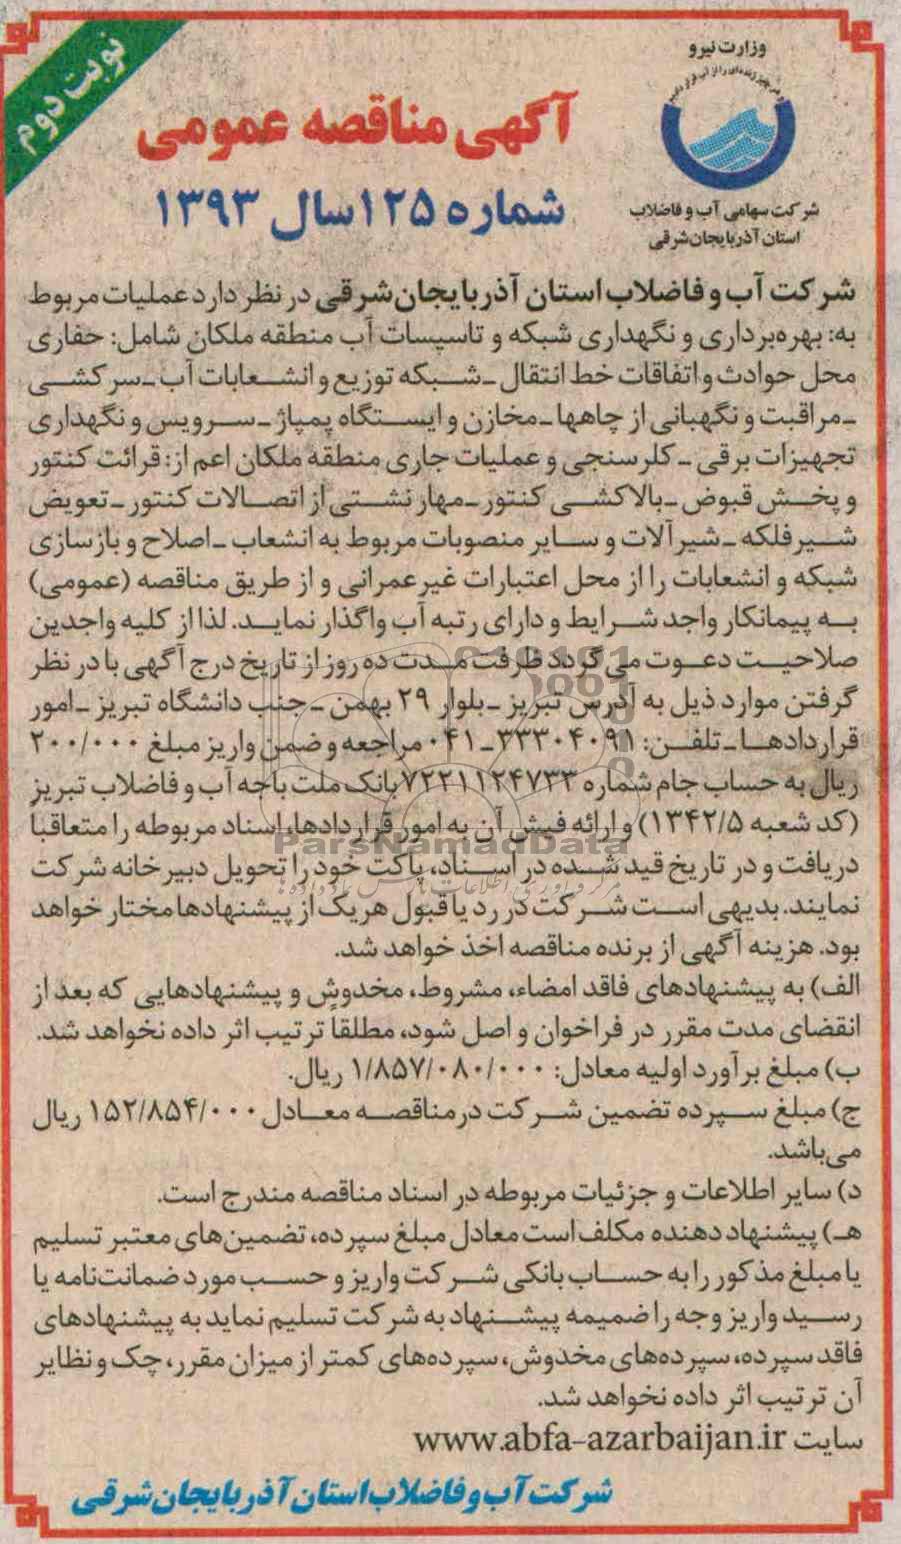 نوبت دوم
وزارت نیرو
شرکت سهامی آب و فاضلاب
استان آذربایجان‌شرقی
آگهی مناقصه عمومی
شماره ۱۲۵ سال ۱۳۹۳
شرکت آب و فاضلاب استان آذربایجان‌شرقی در نظر دارد عملیات مربوط
به: بهره‌برداری و نگهداری شبکه و تاسیسات آب منطقه ملکان شامل: حفاری
محل حوادث و اتفاقات خط انتقال ـ شبکه توزیع و انشعابات آب ـ سرکشی
ـ مراقبت و نگهبانی از چاهها ـ مخازن و ایستگاه پمپاژ ـ سرویس و نگهداری
تجهیزات برقی ـ کلرسنجی و عملیات جاری منطقه ملکان اعم از: قرائت کنتور
و پخش قبوض ـ بالاکشی کنتور ـ مهار نشتی از اتصالات کنتور ـ تعویض
شیرفلکه ـ شیرآلات و سایر منصوبات مربوط به انشعاب ـ اصلاح و بازسازی
شبکه و انشعابات را از محل اعتبارات غیرعمرانی و از طریق مناقصه (عمومی)
به پیمانکار واجد شرایط و دارای رتبه آب واگذار نماید. لذا از کلیه واجدین
صلاحیت دعوت می‌گردد ظرفت مدت ده روز از تاریخ درج آگهی با در نظر
گرفتن موارد ذیل به آدرس تبریز ـ بلوار ۲۹ بهمن ـ جنب دانشگاه تبریز ـ امور
قراردادها ـ تلفن: ۳۳۳۰۴۰۹۱ـ۰۴۱ مراجعه و ضمن واریز مبلغ ۲۰۰/۰۰۰
ریال به حساب جام شماره ۷۲۲۱۱۲۴۷۳۳ بانک ملت باجه آب و فاضلاب تبریز
(کد شعبه ۱۳۴۲/۵) و ارائه فیش آن به امور قراردادها، اسناد مربوطه را متعاقباً
دریافت و در تاریخ قید شده در اسناد، پاکت خود را تحویل دبیرخانه شرکت
نمایند. بدیهی است شرکت در رد یا قبول هریک از پیشنهادها مختار خواهد
بود. هزینه آگهی از برنده مناقصه اخذ خواهد شد.
الف) به پیشنهادهای فاقد امضاء، مشروط، مخدوش و پیشنهادهایی که بعد از
انقضای مدت مقرر در فراخوان و اصل شود، مطلقاً ترتیب اثر داده نخواهد شد.
ب) مبلغ برآورد اولیه معادل: ۱/۸۵۷/۰۸۰/۰۰۰ ریال.
ج) مبلغ سپرده تضمین شرکت در مناقصه معادل ۱۵۲/۸۵۴/۰۰۰ ریال
می‌باشد.
د) سایر اطلاعات و جزئیات مربوطه در اسناد مناقصه مندرج است.
هـ) پیشنهاد دهنده مکلف است معادل مبلغ سپرده، تضمین‌های معتبر تسلیم
یا مبلغ مذکور را به حساب بانکی شرکت واریز و حسب مورد ضمانت‌نامه یا
رسید واریز وجه را ضمیمه پیشنهاد به شرکت تسلیم نماید به پیشنهادهای
فاقد سپرده، سپرده‌های مخدوش، سپرده‌های کمتر از میزان مقرر، چک و نظایر
آن ترتیب اثر داده نخواهد شد.
سایت www.abfa-azarbaijan.ir
شرکت آب و فاضلاب استان آذربایجان شرقی
ParsNamadData